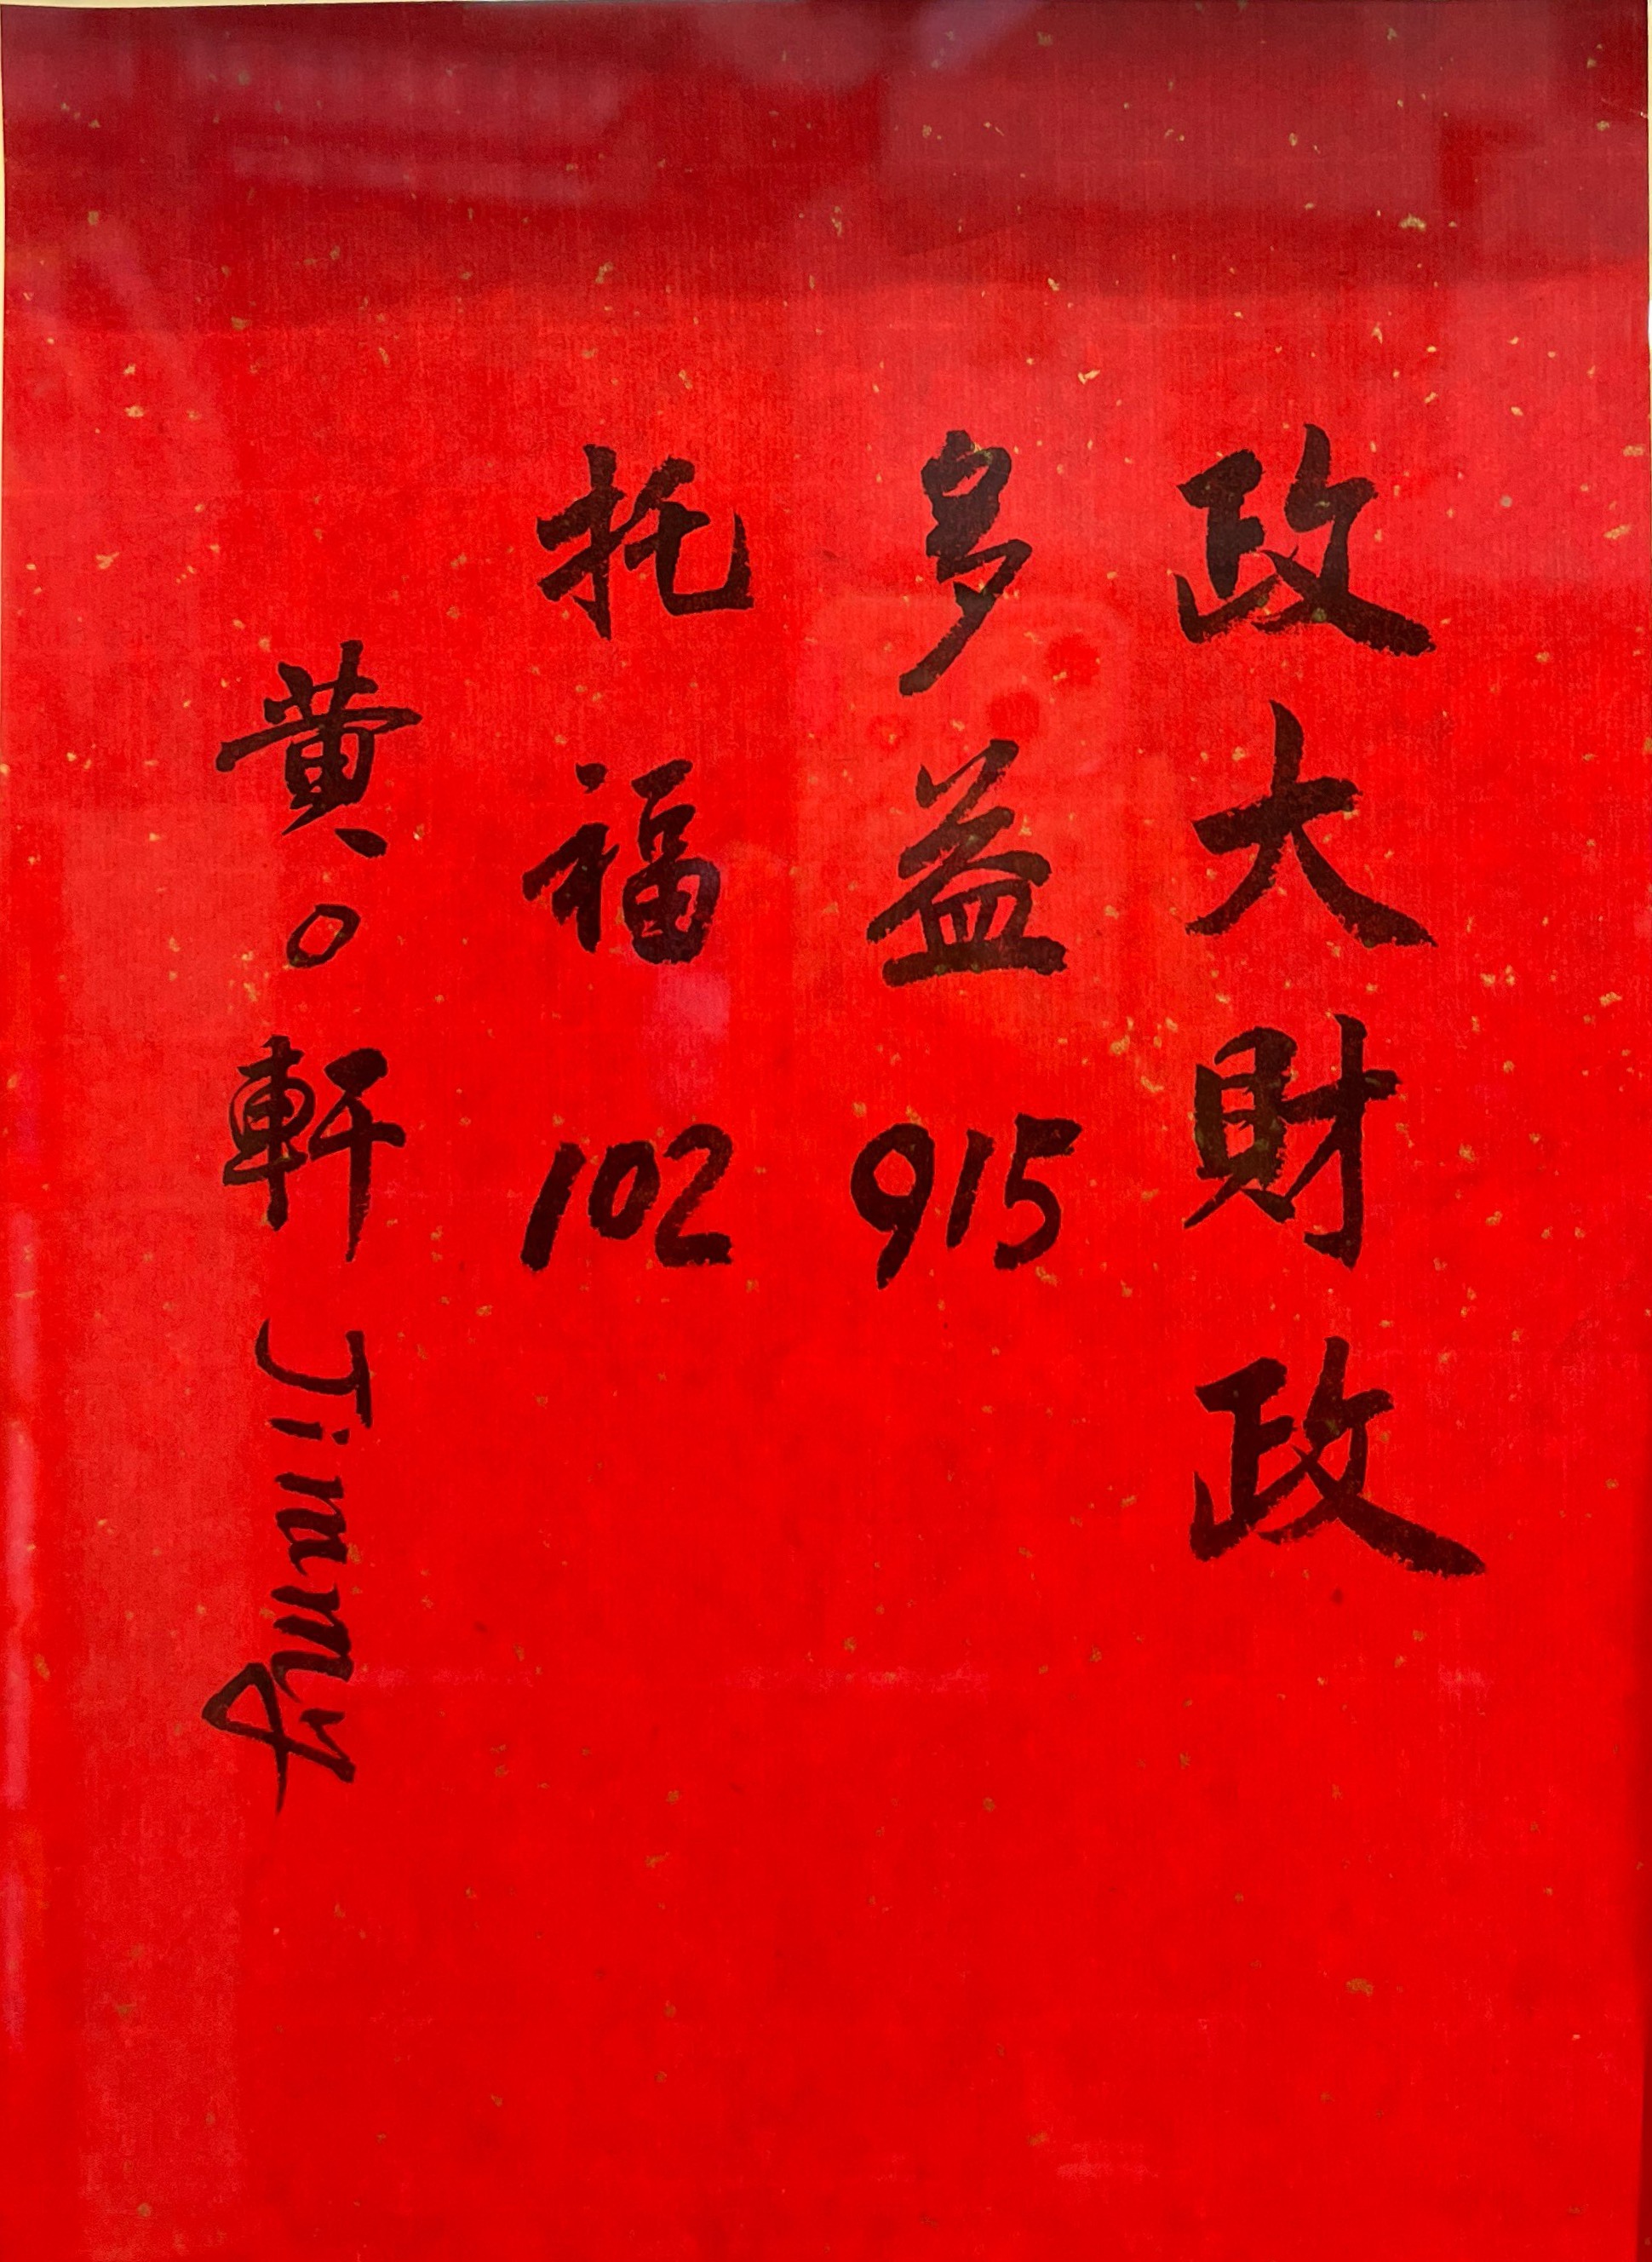 政大財政
多益 915
托福 102
黃○軒 Jimmy